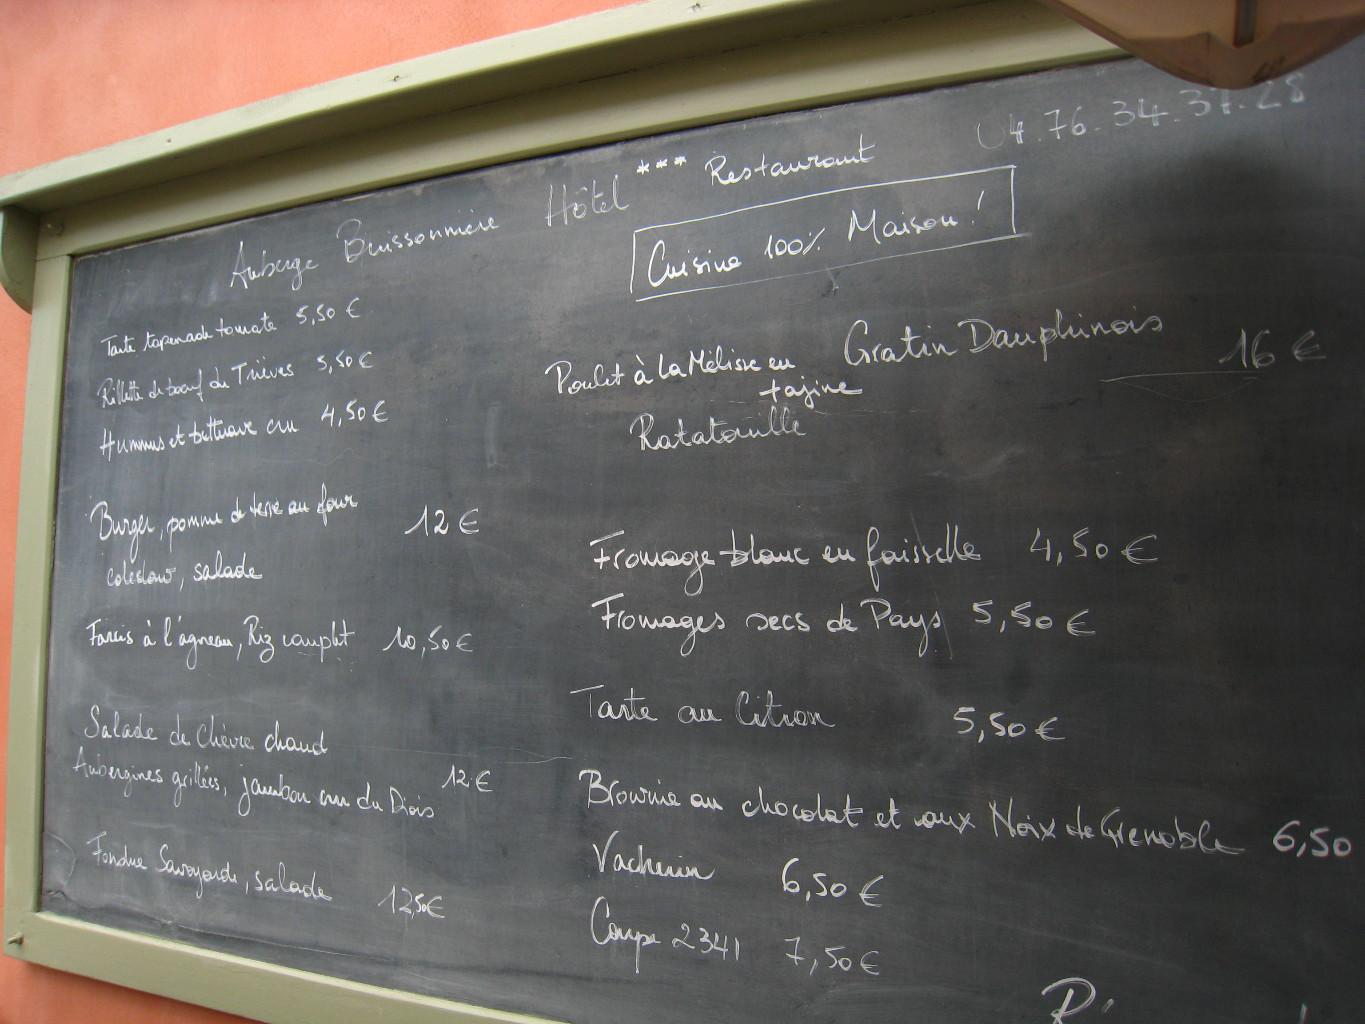 Auberge Buissonnière Hôtel *** Restaurant 04.76.34.37.28
Cuisine 100% Maison !
Tarte tapenade tomate 5,50 €
Rillette de boeuf du Trièves 5,50 €
Hummus et betterave cru 4,50 €
Burger, pomme de terre au four 12 €
coleslaw, salade
Farcis à l'agneau, Riz complet 10,50 €
Salade de Chèvre chaud
Aubergines grillées, jambon cru du Diois 12 €
Fondue Savoyarde, salade 12,50 €
Poulet à la Mélisse en Gratin Dauphinois 16 €
tajine
Ratatouille
Fromage blanc en faisselle 4,50 €
Fromages secs de Pays 5,50 €
Tarte au Citron 5,50 €
Brownie au chocolat et aux Noix de Grenoble 6,50
Vacherin 6,50 €
Coupe 2341 7,50 €